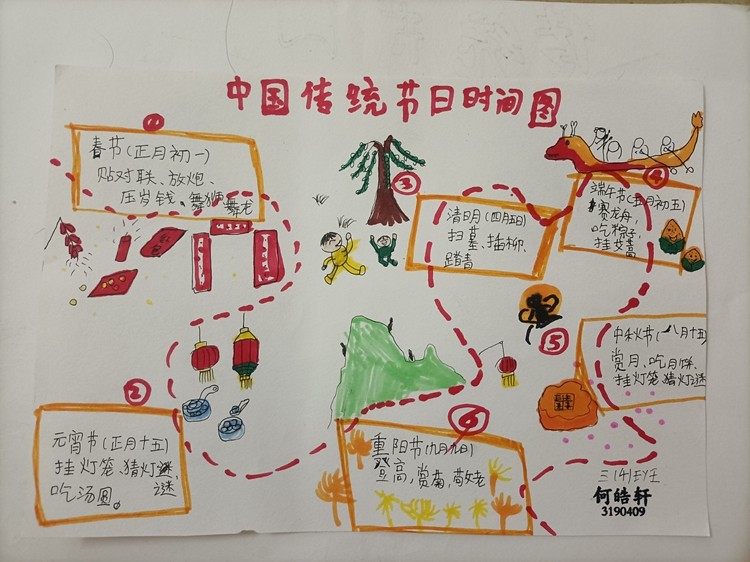 中国传统节日时间图
1
春节(正月初一)
贴对联、放炮、
压岁钱、舞狮舞龙
2
元宵节(正月十五)
挂灯笼、猜灯谜、
吃汤圆。
谜
3
清明(四月五日)
扫墓、插柳、
踏青
4
端午节(五月初五)
赛龙舟,
吃粽子,
挂艾蒿
5
中秋节(八月十五)
赏月、吃月饼、
挂灯笼、猜灯迷
6
重阳节(九月九日)
登高,赏菊,敬老
三(4)班
何皓轩
3190409